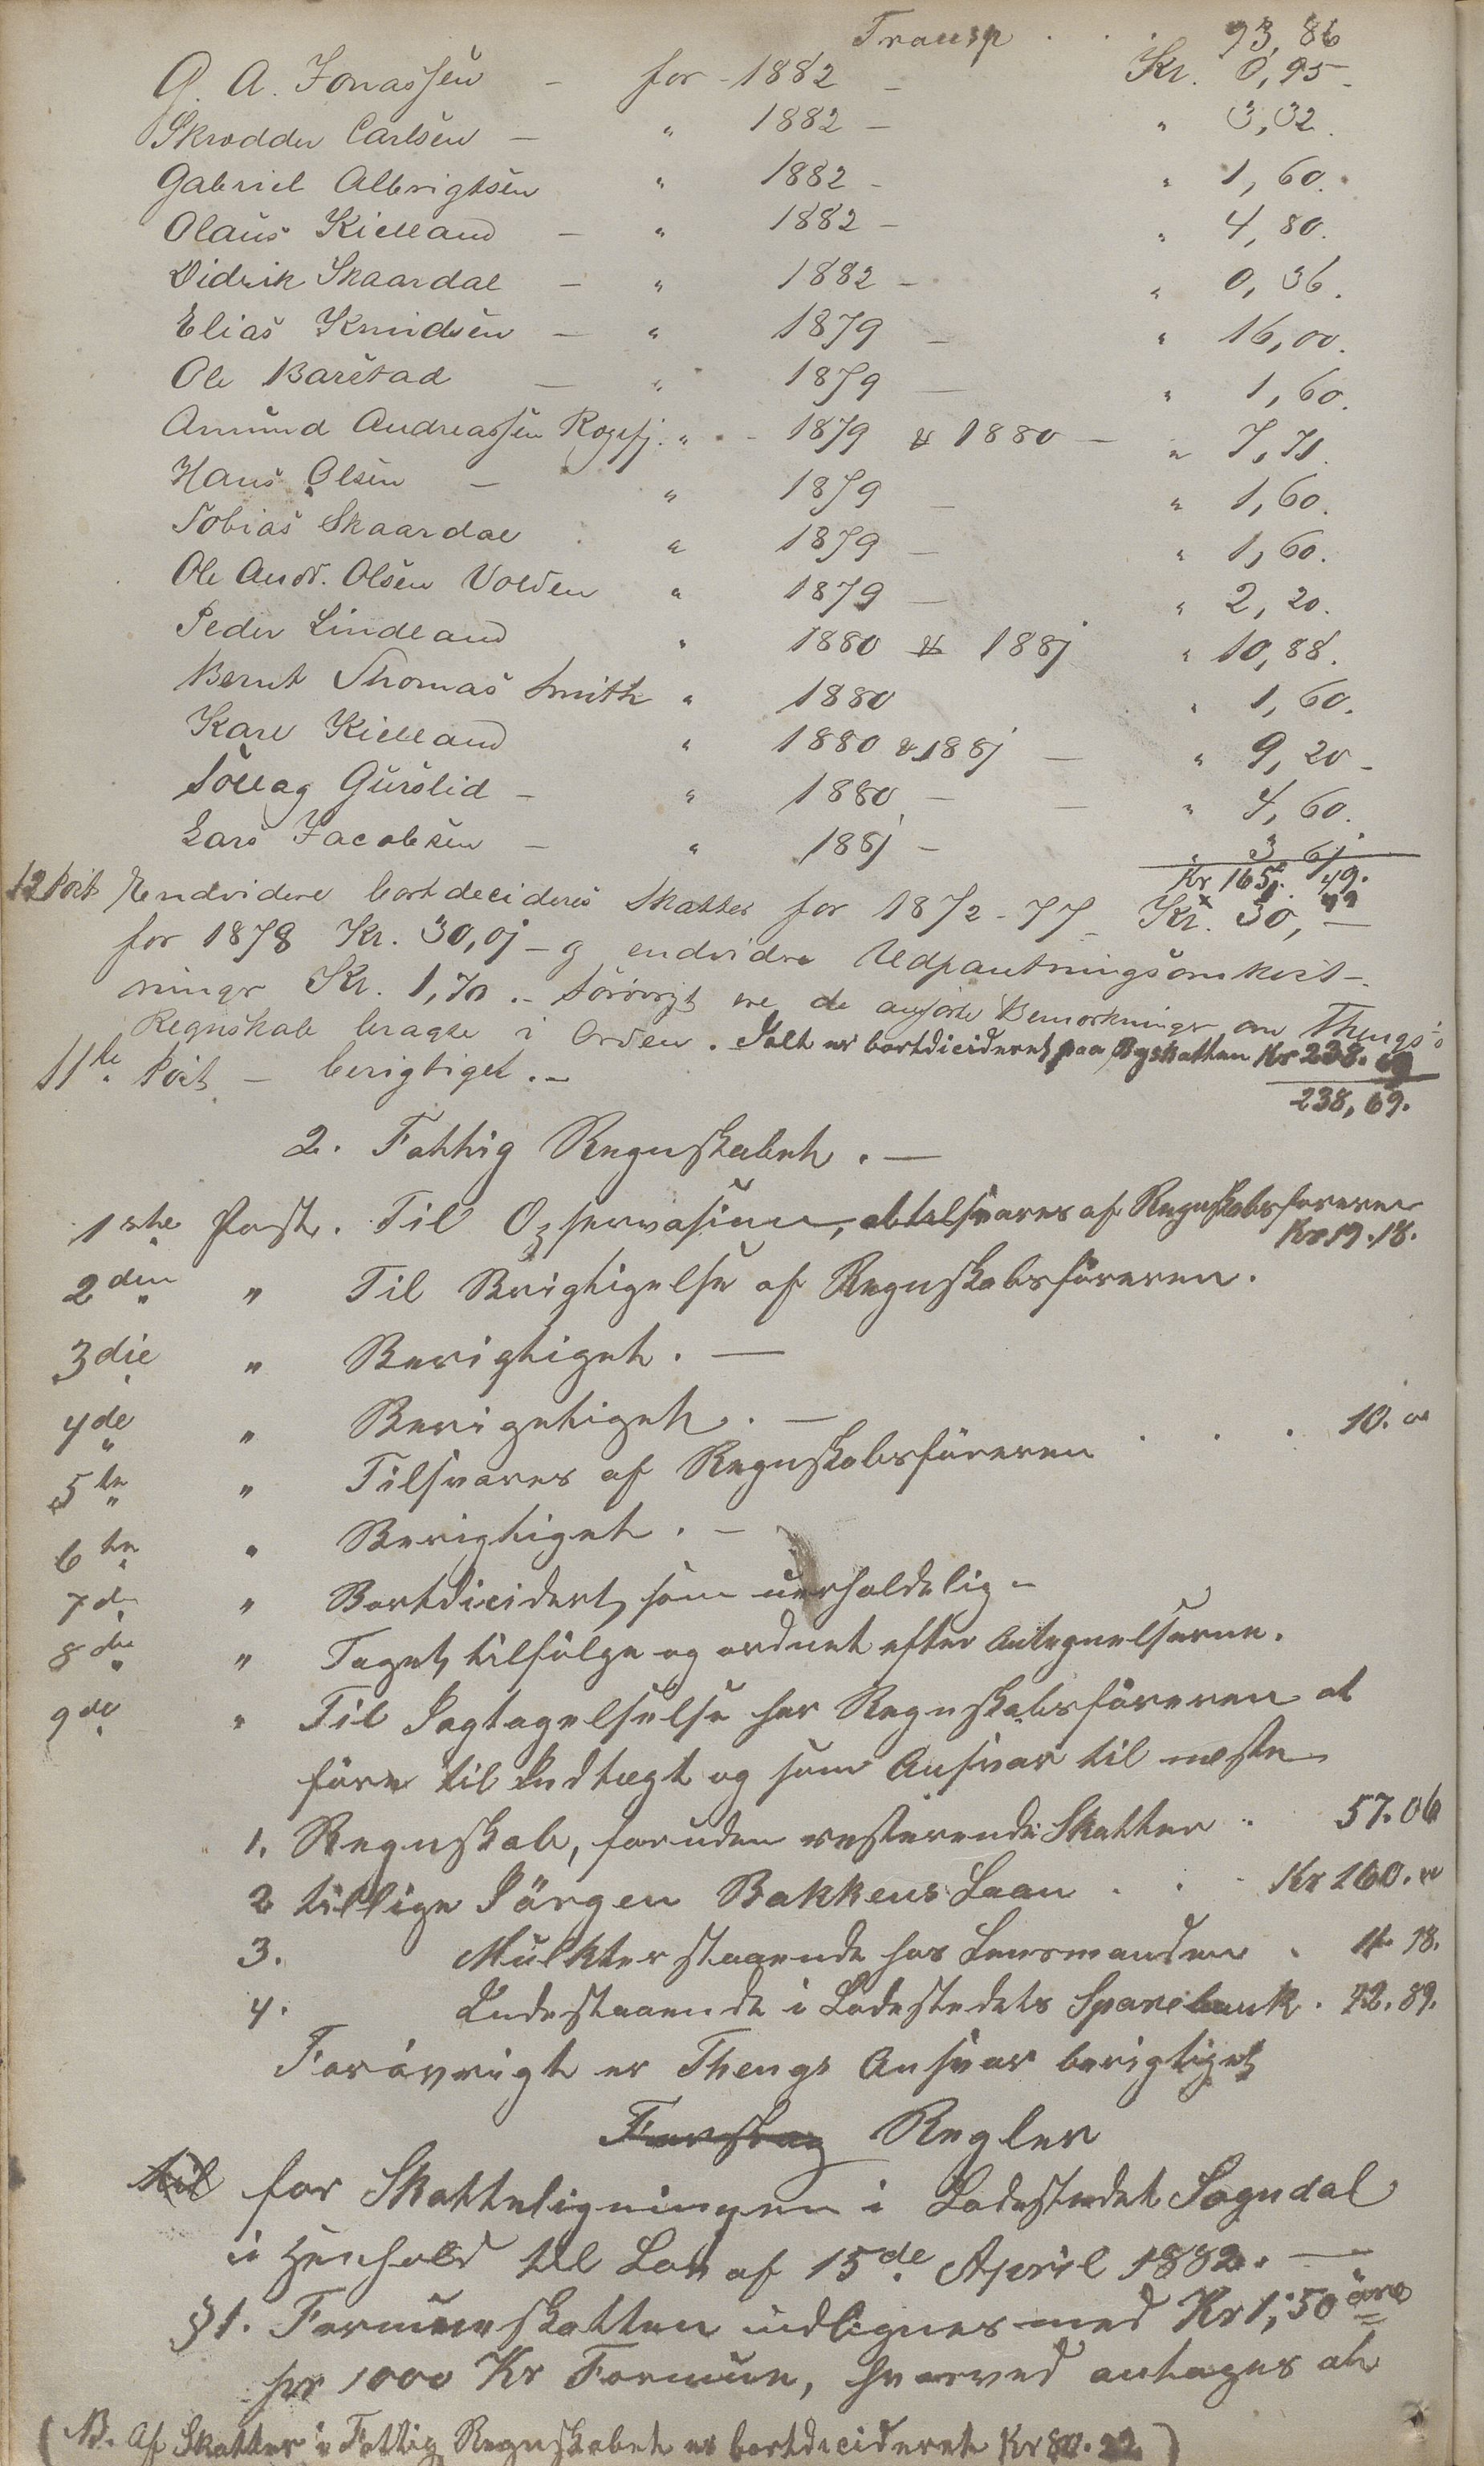 Transp . . 93,86
G. A. Jonassen – for – 1882 – Kr. 0,95 –
Skrædder Carlsen – " 1882 – " 3,32.
Gabriel Albrigtsen " 1882 – " 1,60.
Olaus Kielland – " 1882 – " 4,80.
Didrik Skaardal – " 1882 – " 0,36.
Elias Knudsen – " 1879 – " 16,00.
Ole Barstad – " 1879 – " 1,60.
Amund Andreassen Rægefj. " – 1879 & 1880 – " 7,71.
Hans Olsen – " 1879 – " 1,60.
Tobias Skaardal . " 1879 – " 1,60.
Ole Andr. Olsen Volden " 1879 – " 2,20.
Peder Lindland " 1880 & 1881 " 10,88.
Bernt Thomas Smith " 1880 " 1,60.
Karl Kielland " 1880 & 1881 – " 9,20 –
Sollag Gurslid – " 1880 – – " 4,60.
Lars Jacobsen – " 1881 – " 3 61.
Kr 165. 49.
12 Post Endvidere bortdecideres Skatter for 1872–77 – Kr. 30, –
for 1878 Kr. 30,01 – og endvidere Udpantningsomkost-
ninger Kr. 1,70 . – Forøvrigt ere de anførte Bemærkninger om Thengs's
Regnskab bragte i Orden. Ialt er bortdicideret paa Byskatten Kr 238. 69
11te Post – berigtiget . –
238,69.
2. Fattig Regnskabet . –
1ste Post . Til Observasion, at tilsvares af Regnskabsføreren
Kr 19.18.
2den " Til Berigtigelse af Regnskabsføreren.
3die " Berigtiget . –
4de " Berigetiget . –
5te " Tilsvares af Regnskabsføreren . . . 10. "
6te " Berigtiget . –
7de " Bortdicidert som uerholdelig –
8de " Taget tilfølge og ordnet efter Antegnelserne.
9de " Til Iagtagelselse har Regnskabsføreren at
føre til Indtægt og som Ansvar til næste
1. Regnskab, foruden resterende Skatter . 57.06
2 tillige Jørgen Bakkens Laan . . . Kr 160. "
3. Mulkter staaende hos Lensmanden . 4. 78.
4. Indestaaende i Ladestedets Sparebank . 72.89.
Forøvrigt er Thengs Ansvar berigtiget
Forslag Regler
til for Skatteligningen i Ladestedet Sogndal
i Henhold til Lov af 15de April 1882. –
§ 1. Formueskatten udlignes med Kr 1,50 øre
pr 1000 Kr Formue, hvorved antages at
(NB. Af Skatter i Fattig Regnskabet er bortdicideret Kr 80.22)